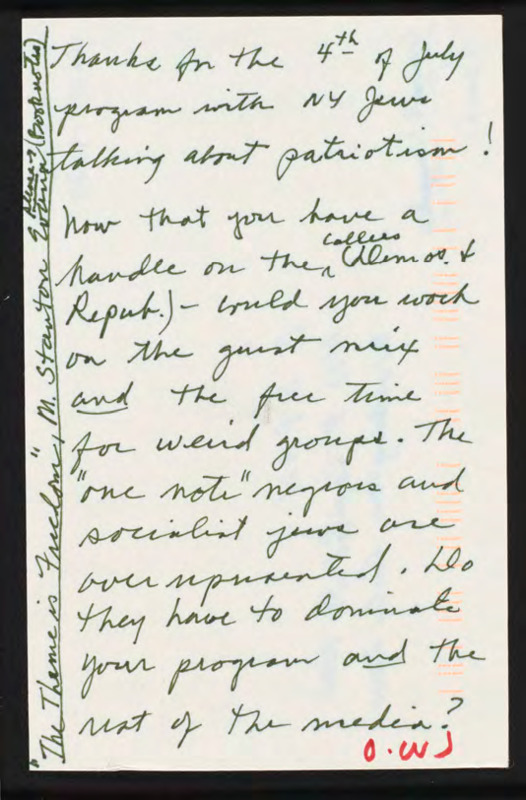 Thanks for the 4th of July
program with NY Jews
talking about patriotism!
Now that you have a
handle on the callers (Demos. &
Repub.) - could you work
on the guest mix
and the free time
for weird groups. The
"one note" negroes and
socialist jews are
over represented. Do
they have to dominate
your program and the
rest of the media?
O.WJ
"The Theme is Freedom", M. Stanton Evans (Booknotes)